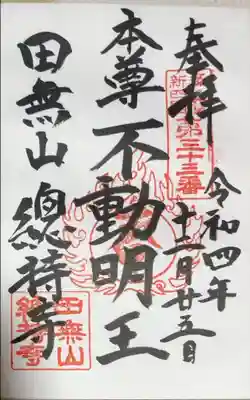 奉拝
第三十三番
令和四年
十二月廿五日
本尊不動明王
田無山 總持寺
田無山
總持寺